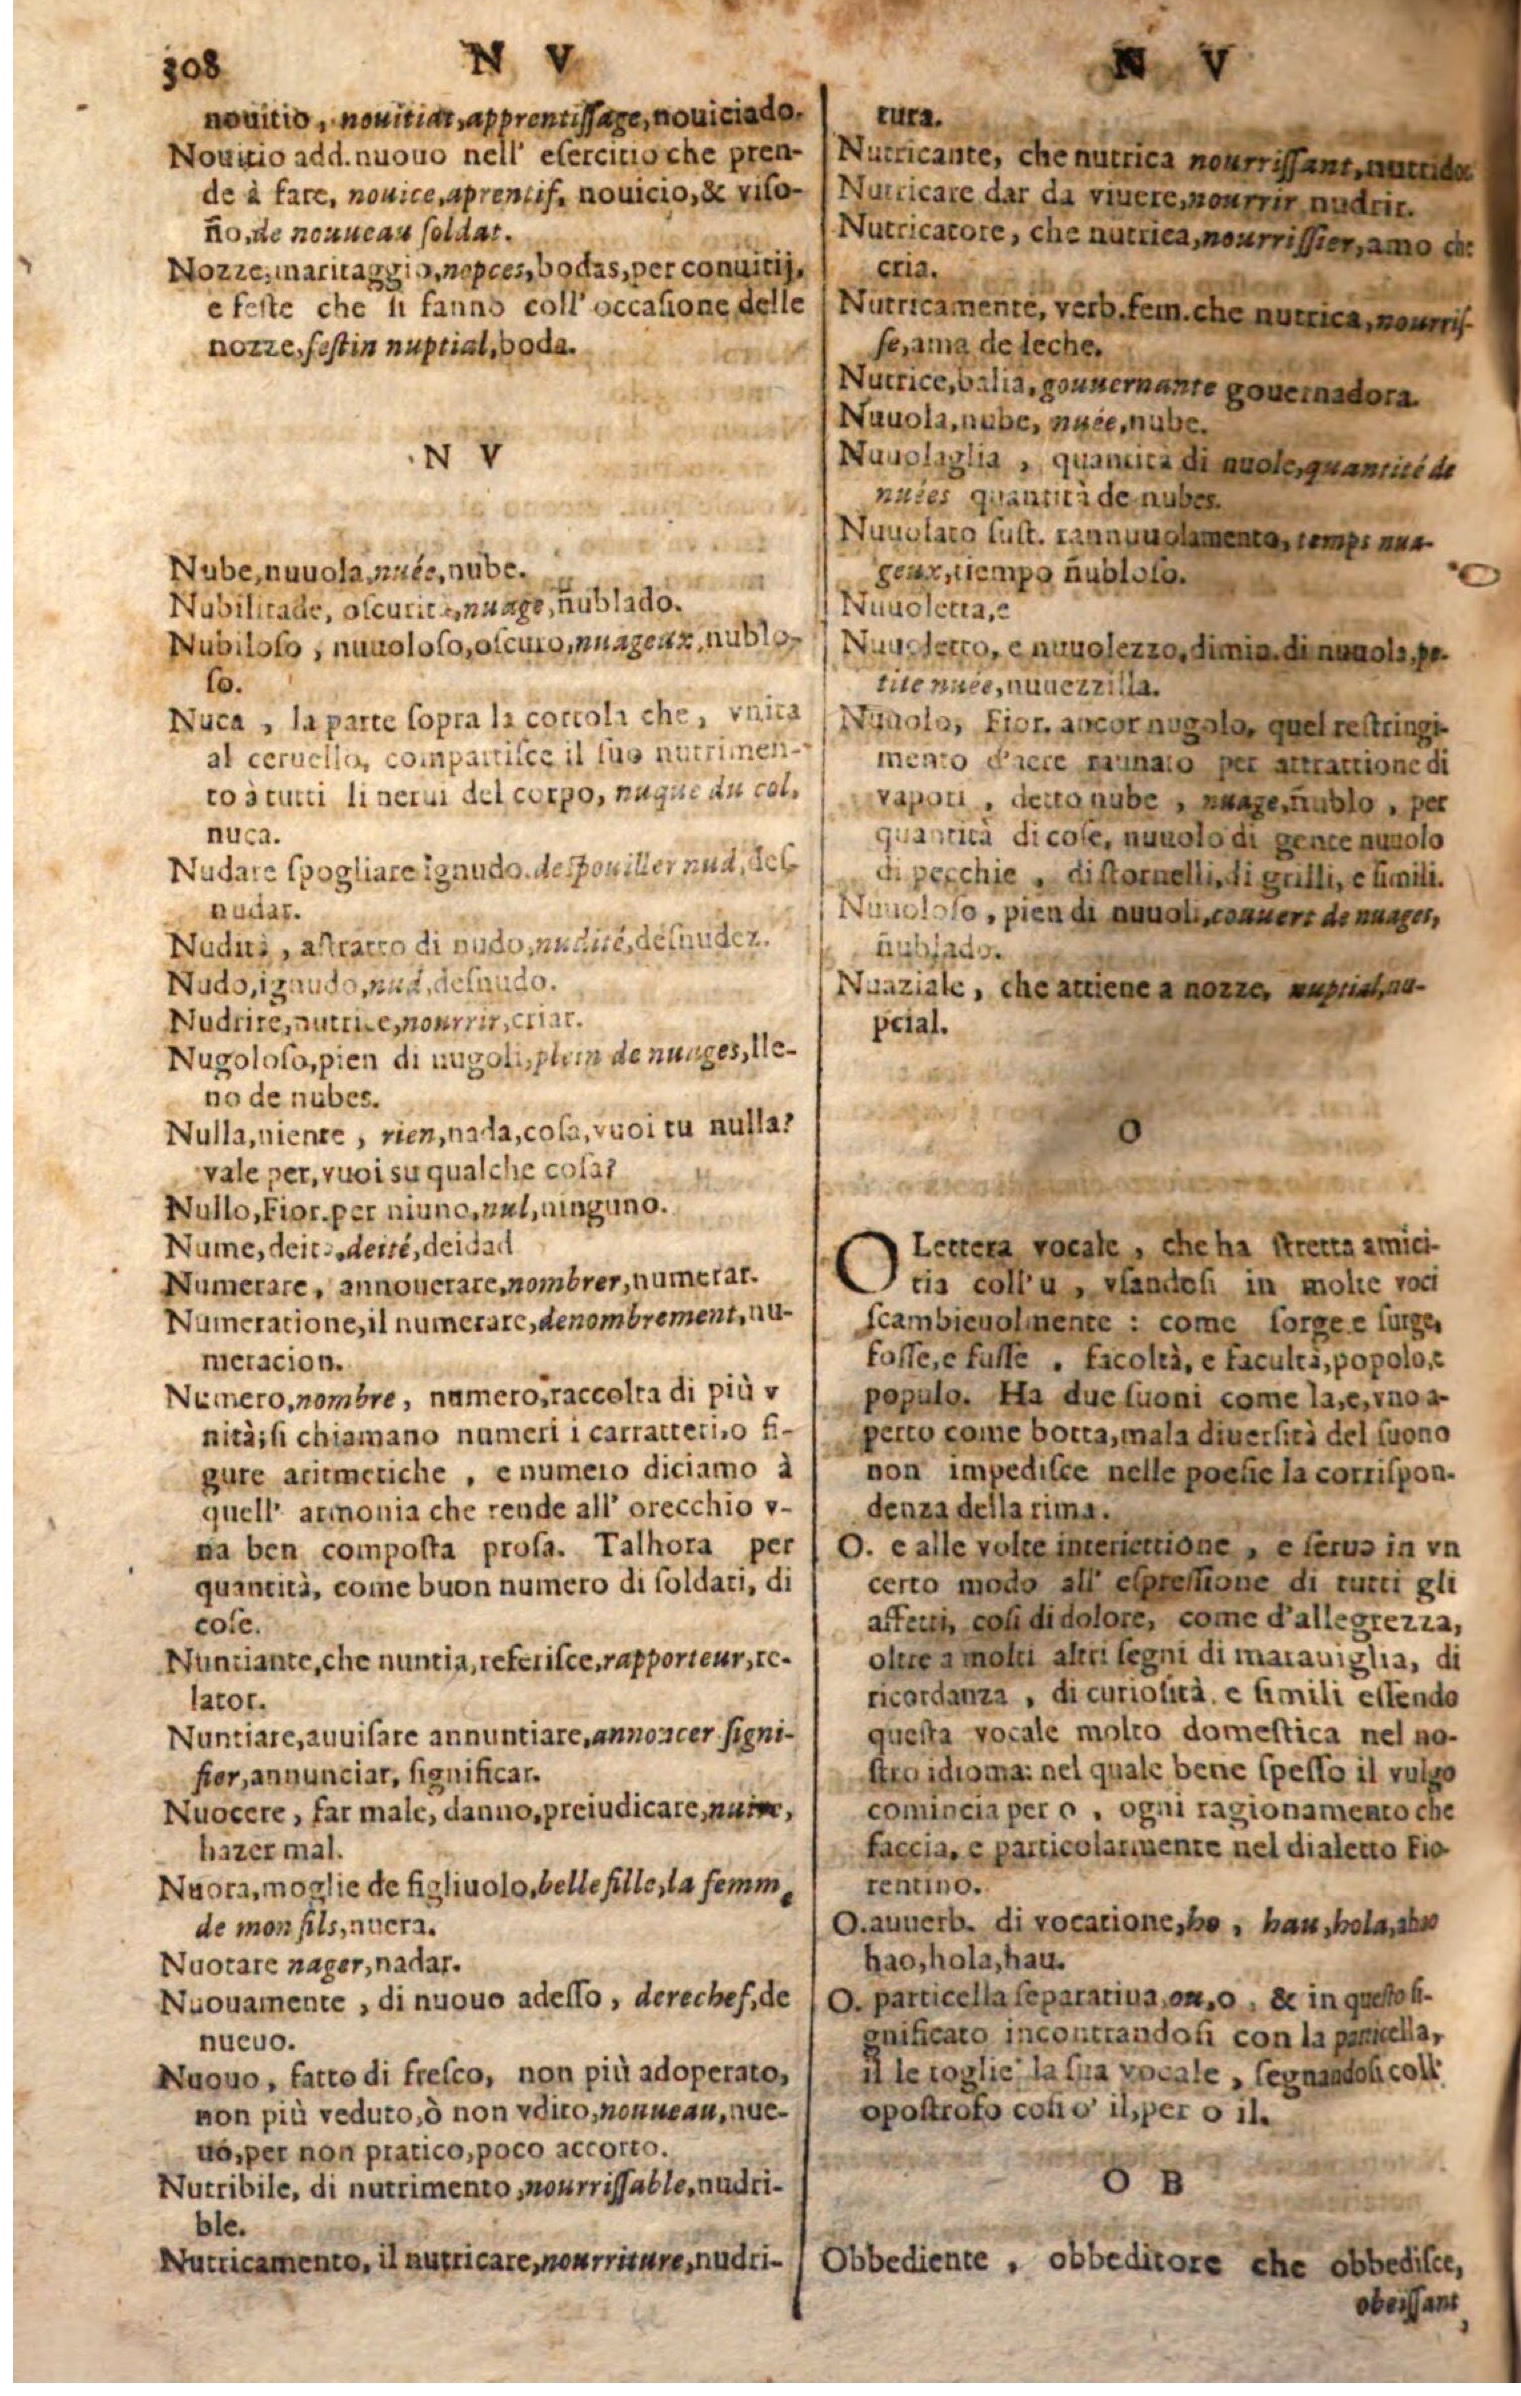 308 N V N V
nouitio, nouitiat, apprentiſſage, nouiciado.
Nouitio add. nuouo nell' eſercitio che pren-
de à fare, nouice, aprentif, nouicio, & viſo-
ño, de nouueau ſoldat.
Nozze, maritaggio, nopces, bodas, per conuitij,
e feſte che ſi fanno coll' occaſione delle
nozze, feſtin nuptial, boda.
N V
Nube, nuuola, nuée, nube.
Nubilitade, oſcurità, nuage, ñublado.
Nubiloſo, nuuoloſo, oſcuro, nuageux, nublo-
ſo.
Nuca, la parte ſopra la cottola che, vnita
al ceruello, compartiſce il ſuo nutrimen-
to à tutti li nerui del corpo, nuque du col,
nuca.
Nudare ſpogliare ignudo. deſpouiller nud, deſ-
nudar.
Nudità, aſtratto di nudo, nudité, deſnudez.
Nudo, ignudo, nud, deſnudo.
Nudrire, nutrire, nourrir, criar.
Nugoloſo, pien di nugoli, plein de nuages, lle-
no de nubes.
Nulla, niente, rien, nada, coſa, vuoi tu nulla?
vale per, vuoi su qualche coſa?
Nullo, Fior. per niuno, nul, ninguno.
Nume, deità, deité, deidad
Numerare, annouerare, nombrer, numerar.
Numeratione, il numerare, denombrement, nu-
meracion.
Numero, nombre, numero, raccolta di più v
nità; ſi chiamano numeri i carratteri, o fi-
gure aritmetiche, e numero diciamo à
quell' armonia che rende all' orecchio v-
na ben compoſta proſa. Talhora per
quantità, come buon numero di ſoldati, di
coſe.
Nuntiante, che nuntia, referiſce, rapporteur, re-
lator.
Nuntiare, auuiſare annuntiare, annoncer ſigni-
fier, annunciar, ſignificar.
Nuocere, far male, danno, preiudicare, nuire,
hazer mal.
Nuora, moglie de figliuolo, belle fille, la femme
de mon fils, nuera.
Nuotare nager, nadar.
Nuouamente, di nuouo adeſſo, derechef, de
nueuo.
Nuouo, fatto di freſco, non più adoperato,
non più veduto, ò non vdito, nouueau, nue-
uo, per non pratico, poco accorto.
Nutribile, di nutrimento, nourriſſable, nudri-
ble.
Nutricamento, il nutricare, nourriture, nudri-
tura.
Nutricante, che nutrica nourriſſant, nutridor
Nutricare dar da viuere, nourrir nudrir.
Nutricatore, che nutrica, nourriſſier, amo che
cria.
Nutricamente, verb. fem. che nutrica, nourriſ-
ſe, ama de leche.
Nutrice, balia, gouuernante gouernadora.
Nuuola, nube, nuée, nube.
Nuuolaglia, quantità di nuole, quantité de
nuées quantità de nubes.
Nuuolato ſuſt. rannuuolamento, temps nua-
geux, tiempo ñubloſo.
Nuuoletta, e
Nuuoletto, e nuuolezzo, dimin. di nuuola, pe-
tite nuée, nuuezzilla.
Nuuolo, Fior. ancor nugolo, quel reſtringi-
mento d'aere raunato per attrattione di
vapori, detto nube, nuage, ñublo, per
quantità di coſe, nuuolo di gente nuuolo
di pecchie, di ſtornelli, di grilli, e ſimili.
Nuuoloſo, pien di nuuoli, couuert de nuages,
ñublado.
Nuaziale, che attiene a nozze, nuptial, nu-
pcial.
O
O Lettera vocale, che ha ſtretta amici-
tia coll'u, vſandoſi in molte voci
ſcambieuolmente: come ſorge e ſurge,
foſſe, e fuſſe, facoltà, e facultà, popolo, e
populo. Ha due ſuoni come la, e, vno a-
perto come botta, ma la diuerſità del ſuono
non impediſce nelle poeſie la corriſpon-
denza della rima.
O. e alle volte interiettione, e ſerue in vn
certo modo all' eſpreſſione di tutti gli
affetti, coſi di dolore, come d'allegrezza,
oltre a molti altri ſegni di marauiglia, di
ricordanza, di curioſità, e ſimili eſſendo
queſta vocale molto domeſtica nel no-
ſtro idioma: nel quale bene ſpeſſo il vulgo
comincia per o, ogni ragionamento che
faccia, e particolarmente nel dialetto Fio-
rentino.
O. auuerb. di vocatione, ho, hau, hola,
hao, hola, hau.
O. particella ſeparatiua, ou, o, & in queſto ſi-
gnificato incontrandoſi con la particella,
il le toglie la ſua vocale, ſegnandoſi coll'
opoſtrofo coſi o' il, per o il.
O B
Obbediente, obbeditore che obbediſce,
obeiſſant,